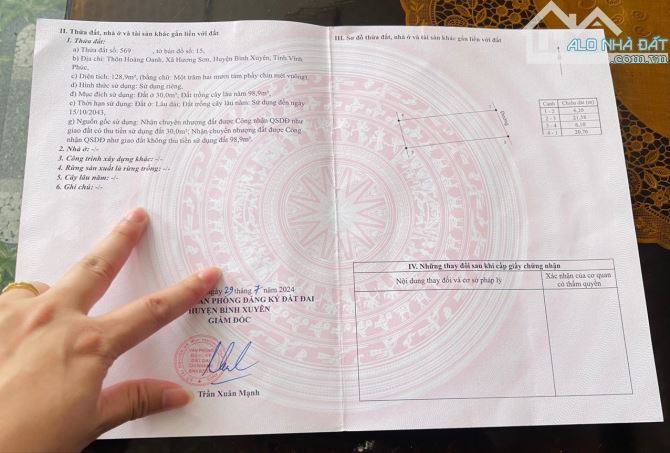 ALO NHÀ ĐẤT
II. Thửa đất, nhà ở và tài sản khác gắn liền với đất
1. Thửa đất:
a) Thửa đất số: 569 , tờ bản đồ số: 15,
b) Địa chỉ: Thôn Hoàng Oanh, Xã Hương Sơn, Huyện Bình Xuyên, Tỉnh Vĩnh
Phúc,
c) Diện tích: 128,9m², (bằng chữ: Một trăm hai mươi tám phẩy chín mét vuông),
d) Hình thức sử dụng: Sử dụng riêng,
đ) Mục đích sử dụng: Đất ở 30,0m²; Đất trồng cây lâu năm 98,9m²,
e) Thời hạn sử dụng: Đất ở: Lâu dài; Đất trồng cây lâu năm: Sử dụng đến ngày
15/10/2043,
g) Nguồn gốc sử dụng: Nhận chuyển nhượng đất được Công nhận QSDĐ như
giao đất có thu tiền sử dụng đất 30,0m²; Nhận chuyển nhượng đất được Công
nhận QSDĐ như giao đất không thu tiền sử dụng đất 98,9m².
2. Nhà ở: -/-
3. Công trình xây dựng khác: -/-
4. Rừng sản xuất là rừng trồng: -/-
5. Cây lâu năm: -/-
6. Ghi chú: -/-
ngày 29 tháng 7 năm 2024
PHÒNG ĐĂNG KÝ ĐẤT ĐAI
HUYỆN BÌNH XUYÊN
GIÁM ĐỐC
Trần Xuân Mạnh
III. Sơ đồ thửa đất, nhà ở và tài sản khác gắn liền với đất
Đường
Cạnh Chiều dài (m)
1 - 2 6,20
2 - 3 21,38
3 - 4
4 - 1 20,76
IV. Những thay đổi sau khi cấp giấy chứng nhận
Nội dung thay đổi và cơ sở pháp lý
Xác nhận của cơ quan
có thẩm quyền